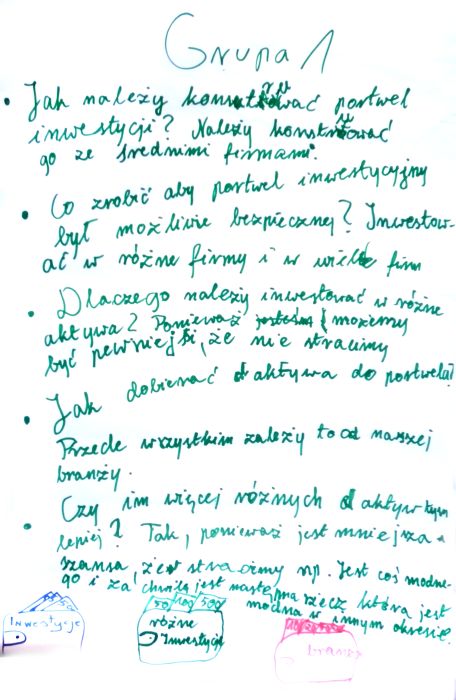 Grupa 1
• Jak należy konstruować portwel
inwestycji? Należy konstruować
go ze średnimi firmami.
• Co zrobić aby portwel inwestycyjny
był możliwie bezpiecznej? Inwestow-
ać w różne firmy i w wiele firm
• Dlaczego należy inwestować w różne
aktywa? Ponieważ możemy
być pewniejsi, że nie stracimy
• Jak dobierać aktywa do portwela?
Przede wszystkim zależy to od naszej
branży.
• Czy im więcej różnych aktyw tym
lepiej? Tak, ponieważ jest mniejsza
szansa, że stracimy np. Jest coś modne-
go i za chwilę jest następna rzecz która jest
modna w innym okresie.
50
Inwestycje
50 100 500
różne
Inwestycje
branży